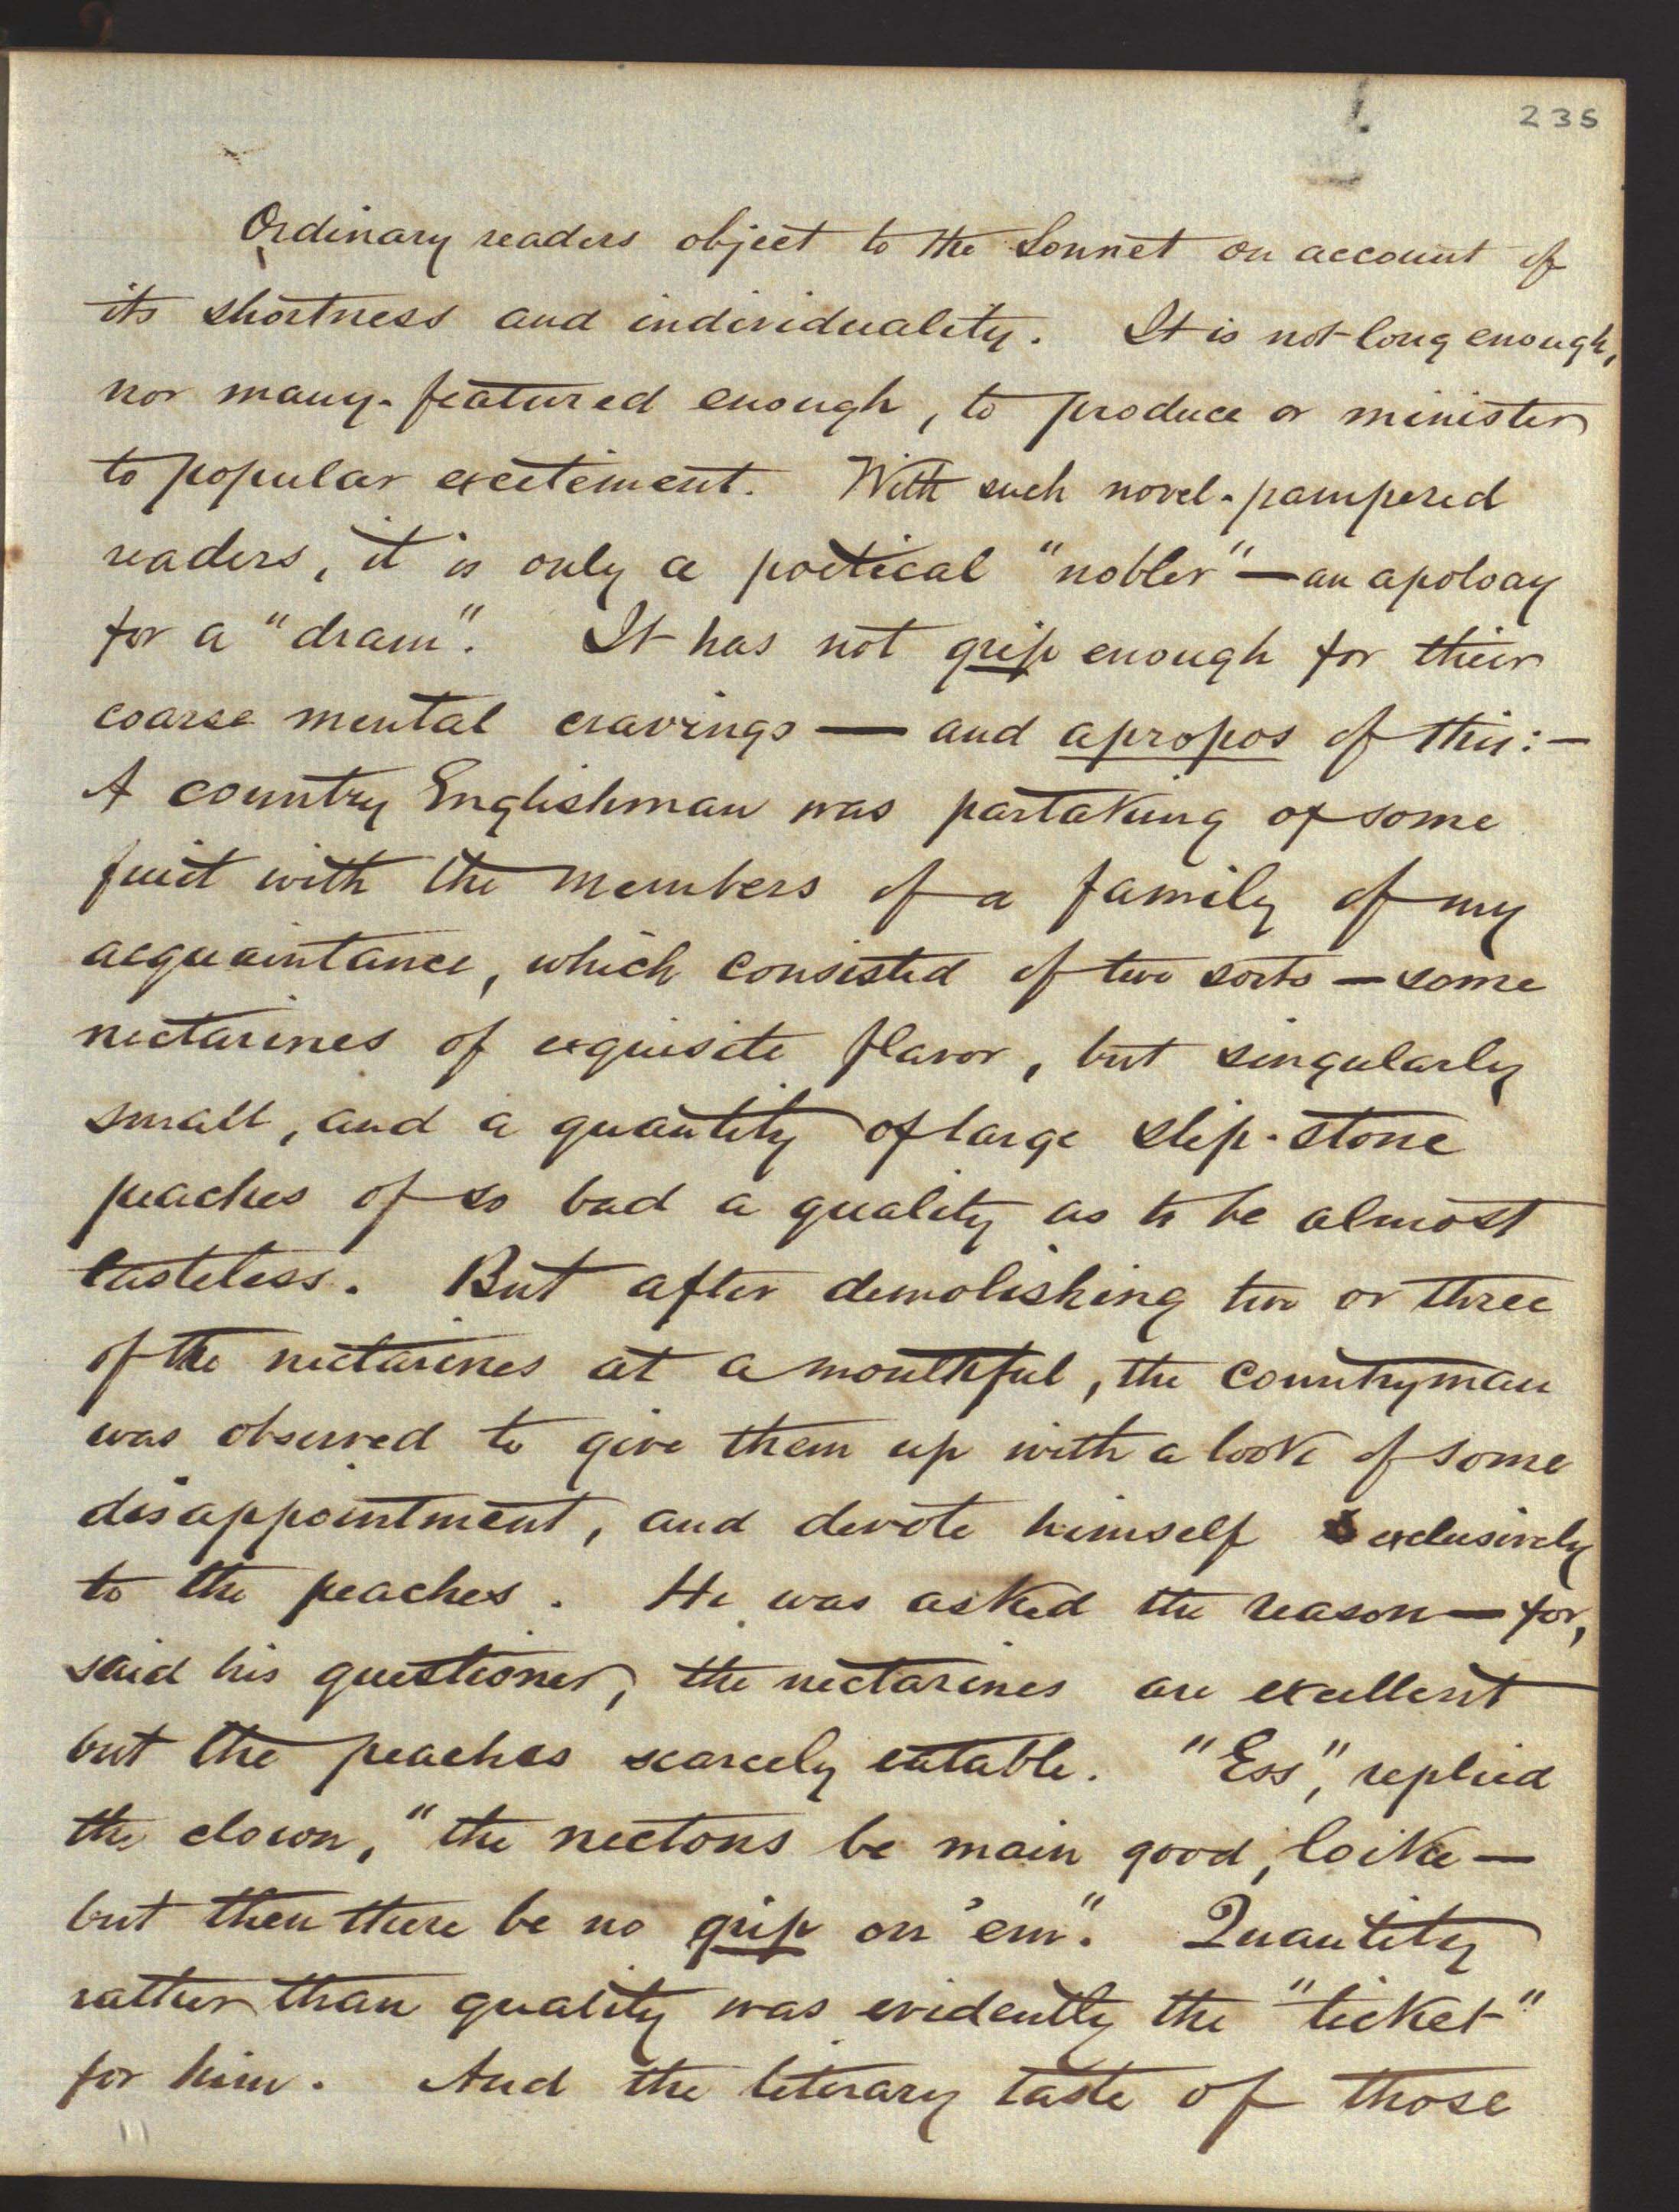 235
Ordinary readers object to the Sonnet on account of
its shortness and individuality. It is not long enough,
nor many-featured enough, to produce or minister
to popular excitement. With such novel-pampered
readers, it is only a poetical "nobler" — an apology
for a "dram". It has not grip enough for their
coarse mental cravings — and apropos of this:—
A country Englishman was partaking of some
fruit with the members of a family of my
acquaintance, which consisted of two sorts — some
nectarines of exquisite flavor, but singularly
small, and a quantity of large slip-stone
peaches of so bad a quality as to be almost
tasteless. But after demolishing two or three
of the nectarines at a mouthful, the countryman
was observed to give them up with a look of some
disappointment, and devote himself exclusively
to the peaches. He was asked the reason — for,
said his questioner, the nectarines are excellent
but the peaches scarcely eatable. "Ess", replied
the clown, "the nectons be main good, loike —
but then there be no grip on 'em". Quantity
rather than quality was evidently the "ticket"
for him. And the literary taste of those